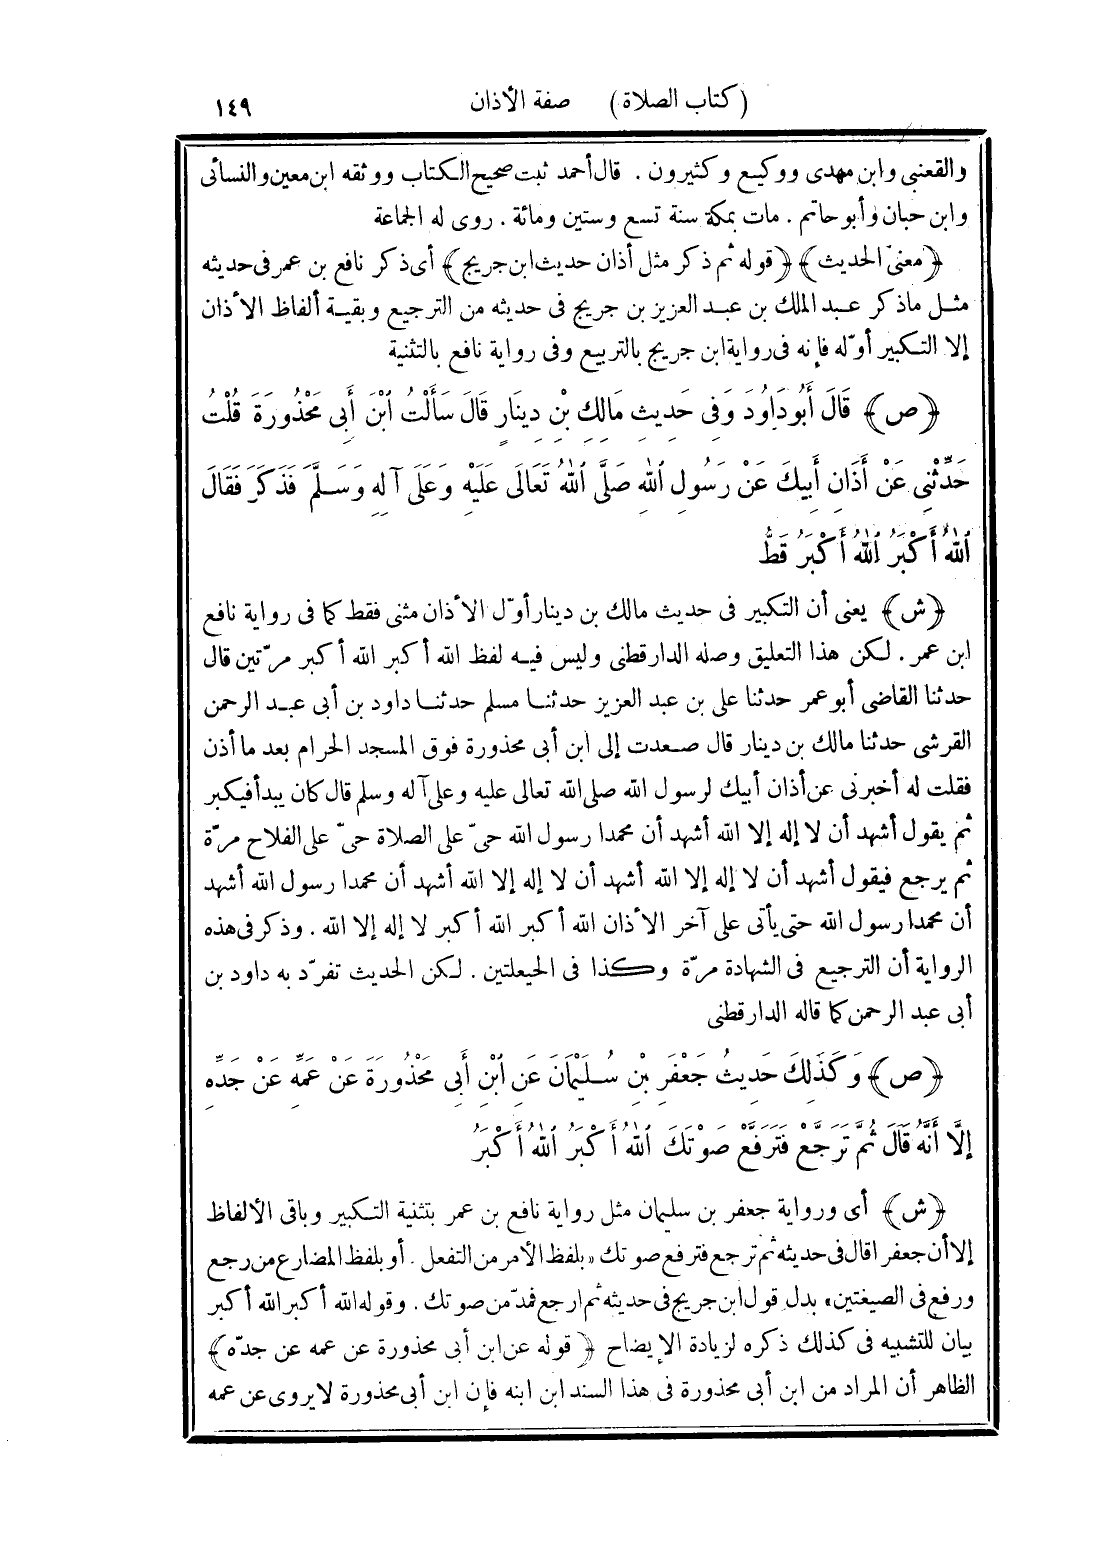 (كتاب الصلاة) صفة الأذان ١٤٩
والقعنبى وابن مهدى ووكيع وكثيرون . قال أحمد ثبت صحيح الكتاب ووثقه ابن معين والنسائى
وابن حبان وأبو حاتم . مات بمكة سنة تسع وستين ومائة . روى له الجماعة
﴿معنى الحديث﴾ ﴿قوله ثم ذكر مثل أذان حديث ابن جريج﴾ أى ذكر نافع بن عمر فى حديثه
مثل ماذكر عبد الملك بن عبد العزيز بن جريج فى حديثه من الترجيع وبقية ألفاظ الأذان
إلا التكبير أوّله فإنه فى رواية ابن جريج بالتربيع وفى رواية نافع بالتثنية
﴿ص﴾ قَالَ أَبُو دَاوُدَ وَفِى حَدِيثِ مَالِكِ بْنِ دِينَارٍ قَالَ سَأَلْتُ ٱبْنَ أَبِى مَحْذُورَةَ قُلْتُ
حَدِّثْنِى عَنْ أَذَانِ أَبِيكَ عَنْ رَسُولِ ٱللهِ صَلَّى ٱللهُ تَعَالَى عَلَيْهِ وَعَلَى آلِهِ وَسَلَّمَ فَذَكَرَ فَقَالَ
ٱللهُ أَكْبَرُ ٱللهُ أَكْبَرُ قَطُّ
﴿ش﴾ يعنى أن التكبير فى حديث مالك بن دينار أوّل الأذان مثنى فقط كما فى رواية نافع
ابن عمر . لكن هذا التعليق وصله الدارقطنى وليس فيه لفظ الله أكبر الله أكبر مرّتين قال
حدثنا القاضى أبو عمر حدثنا على بن عبد العزيز حدثنا مسلم حدثنا داود بن أبى عبد الرحمن
القرشى حدثنا مالك بن دينار قال صعدت إلى ابن أبى محذورة فوق المسجد الحرام بعد ما أذن
فقلت له أخبرنى عن أذان أبيك لرسول الله صلى الله تعالى عليه وعلى آله وسلم قال كان يبدأ فيكبر
ثم يقول أشهد أن لا إله إلا الله أشهد أن محمدا رسول الله حىّ على الصلاة حىّ على الفلاح مرّة
ثم يرجع فيقول أشهد أن لا إله إلا الله أشهد أن لا إله إلا الله أشهد أن محمدا رسول الله أشهد
أن محمدا رسول الله حتى يأتى على آخر الأذان الله أكبر الله أكبر لا إله إلا الله . وذكر فى هذه
الرواية أن الترجيع فى الشهادة مرّة وكذا فى الحيعلتين . لكن الحديث تفرّد به داود بن
أبى عبد الرحمن كما قاله الدارقطنى
﴿ص﴾ وَكَذَلِكَ حَدِيثُ جَعْفَرِ بْنِ سُلَيْمَانَ عَنِ ٱبْنِ أَبِى مَحْذُورَةَ عَنْ عَمِّهِ عَنْ جَدِّهِ
إِلَّا أَنَّهُ قَالَ ثُمَّ تَرَجَّعْ فَتَرَفَّعْ صَوْتَكَ ٱللهُ أَكْبَرُ ٱللهُ أَكْبَرُ
﴿ش﴾ أى ورواية جعفر بن سليمان مثل رواية نافع بن عمر بتثنية التكبير وباقى الألفاظ
إلا أن جعفرا قال فى حديثه ثم ترجع فترفع صوتك «بلفظ الأمر من التفعل . أو بلفظ المضارع من رجع
ورفع فى الصيغتين» بدل قول ابن جريج فى حديثه ثم ارجع فمدّ من صوتك . وقوله الله أكبر الله أكبر
بيان للتشبيه فى كذلك ذكره لزيادة الإيضاح ﴿قوله عن ابن أبى محذورة عن عمه عن جدّه﴾
الظاهر أن المراد من ابن أبى محذورة فى هذا السند ابن ابنه فإن ابن أبى محذورة لا يروى عن عمه